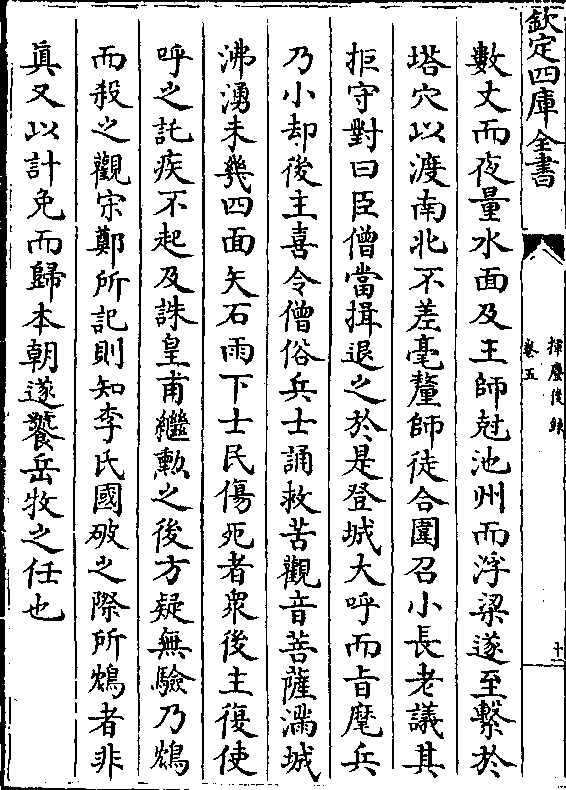 欽定四庫全書
揮麈後錄
卷五
十一
數丈而夜量水面及王師尅池州而浮梁遂至繫於
塔穴以渡南北不差毫釐師徒合圍召小長老議其
拒守對曰臣僧當揖退之於是登城大呼而㫖麾兵
乃小却後主喜令僧俗兵士誦救苦觀音菩薩滿城
沸湧未幾四面矢石雨下士民傷死者衆後主復使
呼之託疾不起及誅皇甫繼勳之後方疑無驗乃鴆
而殺之觀宋鄭所記則知李氏國破之際所鴆者非
眞又以計免而歸本朝遂饕岳牧之任也